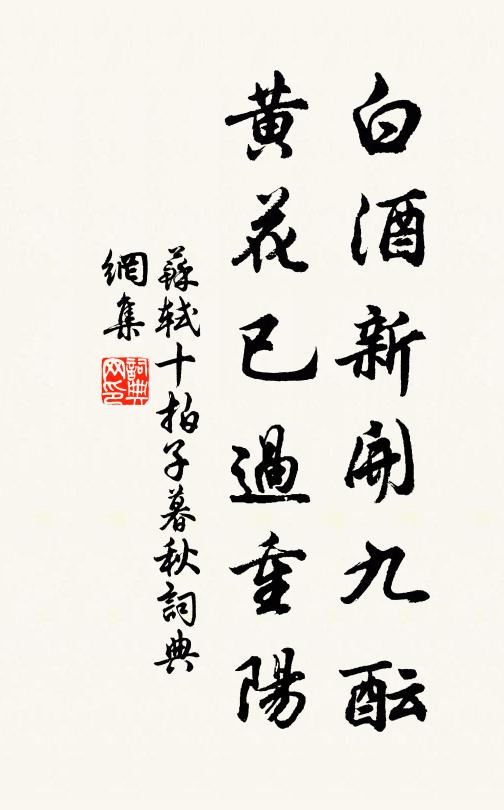 白酒新開九醞
黄花已過重陽
蘇軾十拍子暮秋詞典
網集
詞典网印